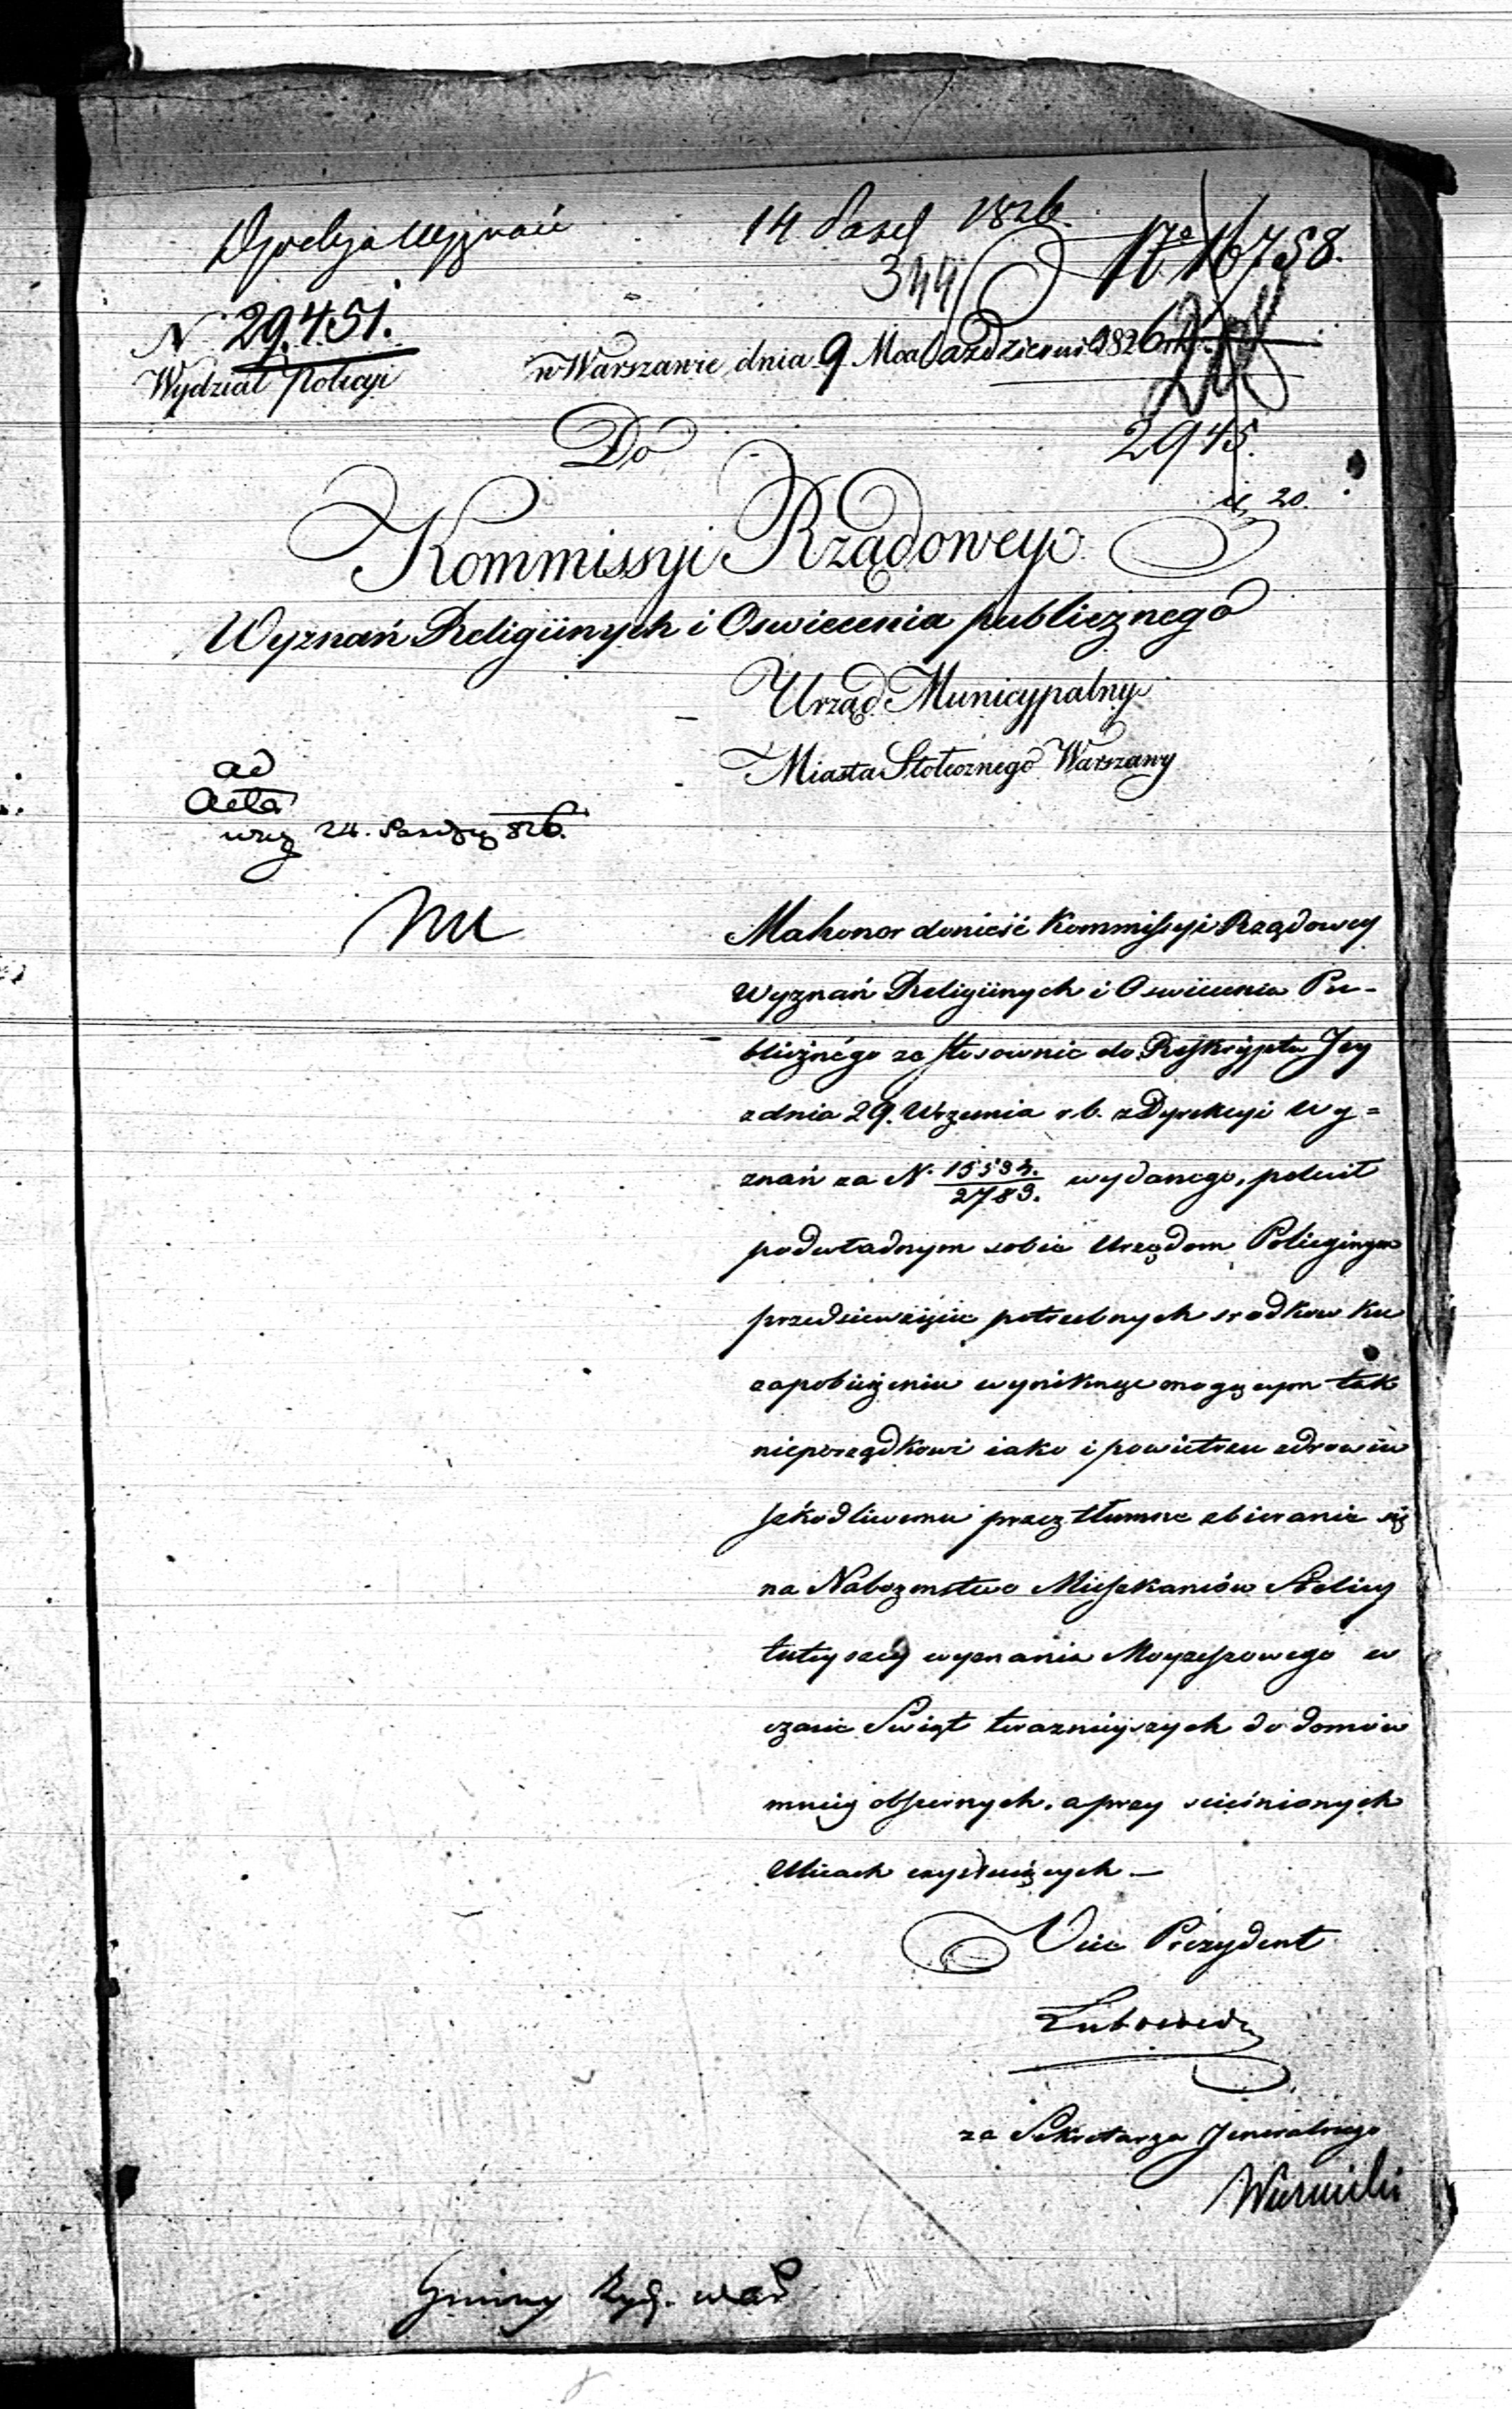 Dyrekcya Wyznań
14 Paźd 1826.
344
16758.
N 29,451.
Wydział Policyi
w Warszawie dnia 9 Mca Październi 1826 r.
2945.
20.
Do
Kommissyi Rządowey
Wyznań Religiinych i Oswiecenia publicznego
Urząd Municypalny
Miasta Stołecznego Warszawy
ad
Acta
24. 826.
Ma honor donieść Kommissyi Rządowey
Wyznań Religiinych i Oswiecenia Pu-
blicznego ze stosownie do Reskryptu Jey
z dnia 29. Września r.b. z Dyrekcyi Wy=
znań za N. 15534./2789. wydanego, polecił
podwładnym sobie Urzędom Policyinym
przedsiewzięcie potrzebnych srodkow ku
zapobieżeniu wyniknąć mogącym tak
nieporządkowi iako i powietrzu zdrowiu
szkodliwemu przez tłumne zbieranie się
na Nabozenstwo Mieszkańców Stolicy
tuteyszey wyznania Moyżeszowego w
czasie Swiąt terazniejszych do domów
mniey obszernych, a przy scieśnionych
Ulicach exystuiących —
Vice Prezydent
Lubowidzki
za Sekretarza Jeneralnego
Gminy